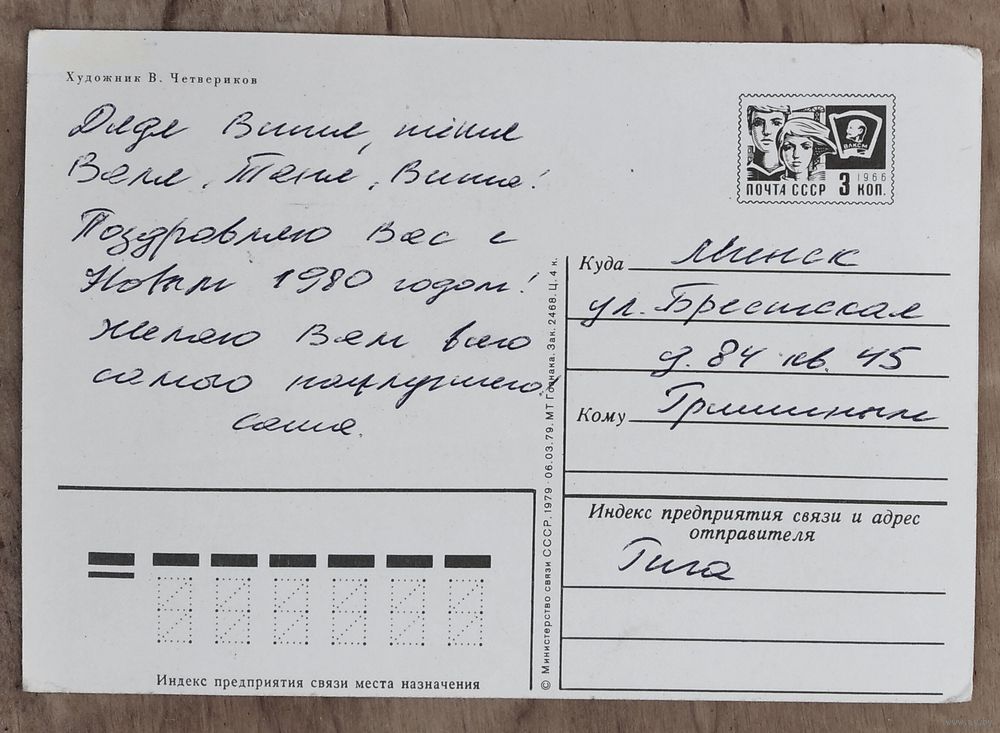 Художник В. Четвериков
Дядя Витя, тётя
Валя, Таня, Витя!
Поздравляю Вас с
Новым 1980 годом!
Желаю Вам всего
самого наилучшего!
Саша.
ВЛКСМ
1966
ПОЧТА СССР 3 КОП.
Куда Минск
ул. Брестская
д. 84 кв. 45
Кому Гришиным
Индекс предприятия связи и адрес
отправителя
Рига
© Министерство связи СССР. 1979 · 06.03.79. МТ Гознака. Зак. 2468. Ц. 4 к.
Индекс предприятия связи места назначения
www.ay.by